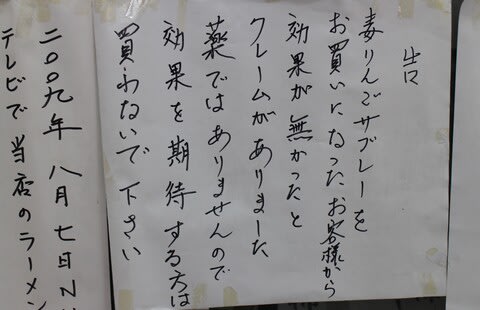 毒りんごサブレーを
お買いになったお客様から
効果が無かったと
クレームがありました
薬ではありませんので
効果を期待する方は
買わないで下さい
二〇〇九年 八月七日N
テレビで当店のラーメン